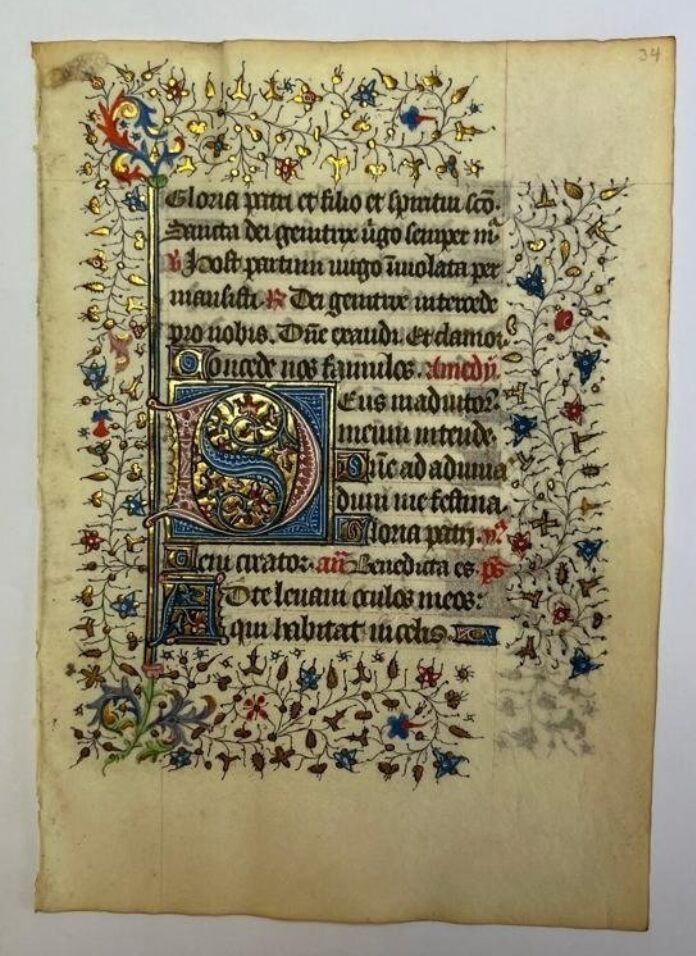 34
Gloria patri et filio et spiritui scō.
Sancta dei genitrix ūgo semper m̄ᵃ
℣ Post partum uirgo īuiolata per
mansisti. ℟ Dei genitrix intercede
pro nobis. Dn̄e exaudi. Et clamor
Concede nos famulos. Amedȳ.
Deus in adiutor
meum intende.
Dn̄e ad adiuua
dum me festina.
Gloria patri.
Veni creator. añ Benedicta es. ps
Ad te leuaui oculos meos:
qui habitat in celis.